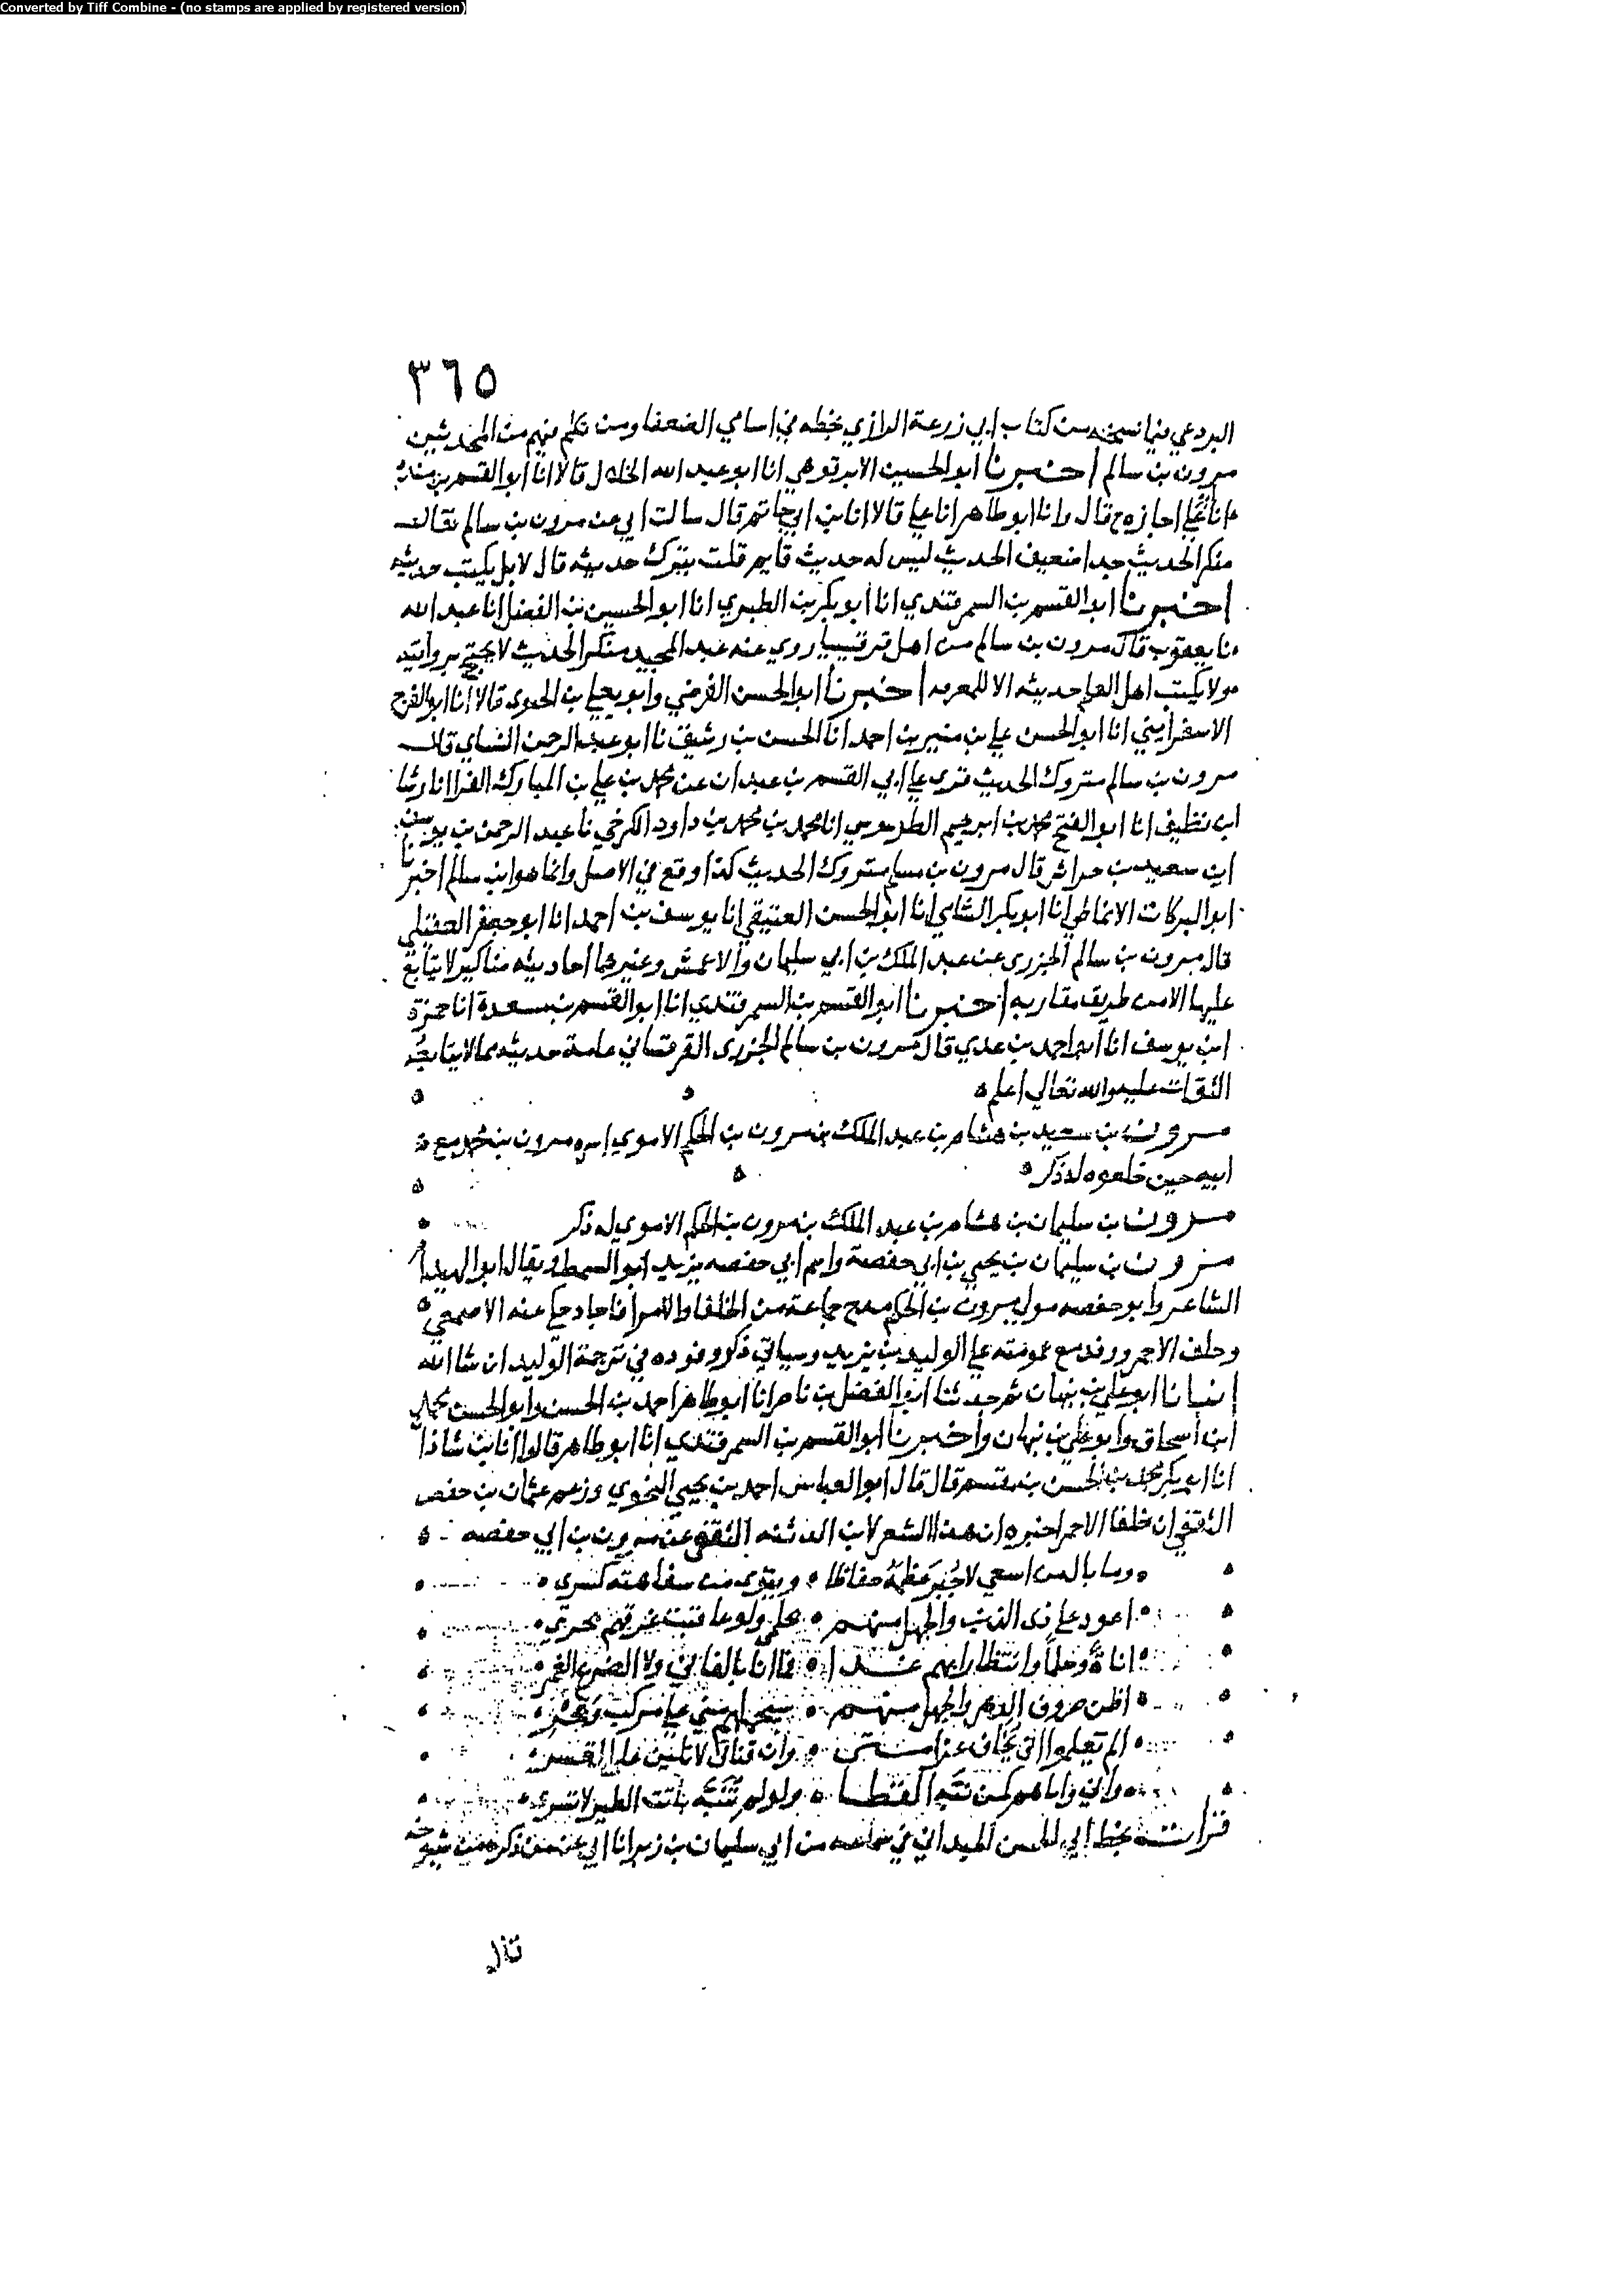 Converted by Tiff Combine - (no stamps are applied by registered version)
٣٦٥
البردعي فيما نسخه من كتاب ابي زرعة الرازي بخطه في اسامي الضعفا ومن تكلم فيهم من المحدثين
مرون بن سالم اخبرنا ابو الحسين الابرقوهي انا ابو عبد الله الخلال قالا انا ابو القسم بن منده
انا علي اجازه ح قال وانا ابو طاهر انا علي قالا انا بن ابي حاتم قال سالت ابي عن مرون بن سالم فقال
منكر الحديث جدا ضعيف الحديث ليس له حديث قايم قلت يترك حديثه قال لا بل يكتب حديثه
اخبرنا ابو القسم بن السمرقندي انا ابو بكر بن الطبري انا ابو الحسين بن الفضل انا عبد الله
نا يعقوب قال مرون بن سالم من اهل قرقيسيا روي عنه عبد المجيد منكر الحديث لا يحتج بروايته
ولا يكتب اهل العلم حديثه الا للمعرفه اخبرنا ابو الحسن الفرضي وابو يعلي بن الحبوبي قالا انا ابو الفرج
الاسفرايني انا ابو الحسن علي بن منير بن احمد انا الحسن بن رشيق نا ابو عبد الرحمن النساي قال
مرون بن سالم متروك الحديث قرى علي ابي القسم بن عبدان عن محمد بن علي بن المبارك الفرا انا رشا
ابن نظيف انا ابو الفتح محمد بن ابرهيم الطرسوسي انا محمد بن محمد بن داود الكرخي نا عبد الرحمن بن يوسف
ابن سعيد بن خراش قال مرون بن مسلم متروك الحديث كذا وقع في الاصل وانما هو ابن سالم اخبرنا
ابو البركات الانماطي انا ابو بكر الشامي انا ابو الحسن العتيقي انا يوسف بن احمد انا ابو جعفر العقيلي
قال مرون بن سالم الجزرى عن عبد الملك بن ابي سليمان والاعمش وغيرهما احاديثه مناكير لا يتابع
عليها الا من طريق مقاربه اخبرنا ابو القسم بن السمرقندي انا ابو القسم بن مسعدة انا حمزة
ابن يوسف انا ابو احمد بن عدي قال مرون بن سالم الجزرى القرقساني عامة حديثه مما لا يتابعه
الثقات عليه والله تعالي اعلم
مرون بن سعيد بن هشام بن عبد الملك بن مرون بن الحكم الاموي اسره مرون بن محمد مع
ابيه حين خلعوه له ذكر
مرون بن سليمان بن هشام بن عبد الملك بن مرون بن الحكم الاموي له ذكر
مرون بن سليمان بن يحيي بن ابي حفصة واسم ابي حفصه يزيد ابو السمط ويقال ابو الهيدام
الشاعر وابو حفصه مولي مرون بن الحكم مدح جماعة من الخلفا والامرا فاجاد حكي عنه الاصمعي
وخلف الاحمر ووفد مع عمومته علي الوليد بن يزيد وسياتي ذكر وفوده في ترجمة الوليد ان شا الله
انبانا ابو علي بن نبهان ثم حدثنا ابو الفضل بن ناصر انا ابو طاهر احمد بن الحسن وابو الحسن محمد
ابن اسحاق وابو علي بن نبهان واخبرنا ابو القسم بن السمرقندي انا ابو طاهر قالوا انا بن شاذان
انا ابو بكر محمد بن الحسن بن مقسم قال قال ابو العباس احمد بن يحيي النحوي وزعم عثمان بن حفص
الثقفي ان خلفا الاحمر اخبره ان هذا الشعر لابن الذئنه الثقفي عن مرون بن ابي حفصه
وما بال من اسعي لاجبر عظمه حفاظا وينوى من سفاهته كسرى
اعود على ذى الذنب والجهل منهم بحلمي ولو عاقبت غرقهم بحري
اناة وحلما وانتظارا بهم غدا فما انا بالفاني ولا الضرع الغمر
اظن صروف الدهر والجهل منهم ستحملهم مني علي مركب وعر
الم تعلموا اني تخاف عرامتي وان قناتي لا تلين علي القسر
واني واياهم كمن نبه القطا ولو لم تنبه باتت الطير لا تسرى
قرات بخط ابي الحسن الميداني في سماعه من ابي سليمان بن زبر انا ابي عن من ذكره من شيوخه
قال